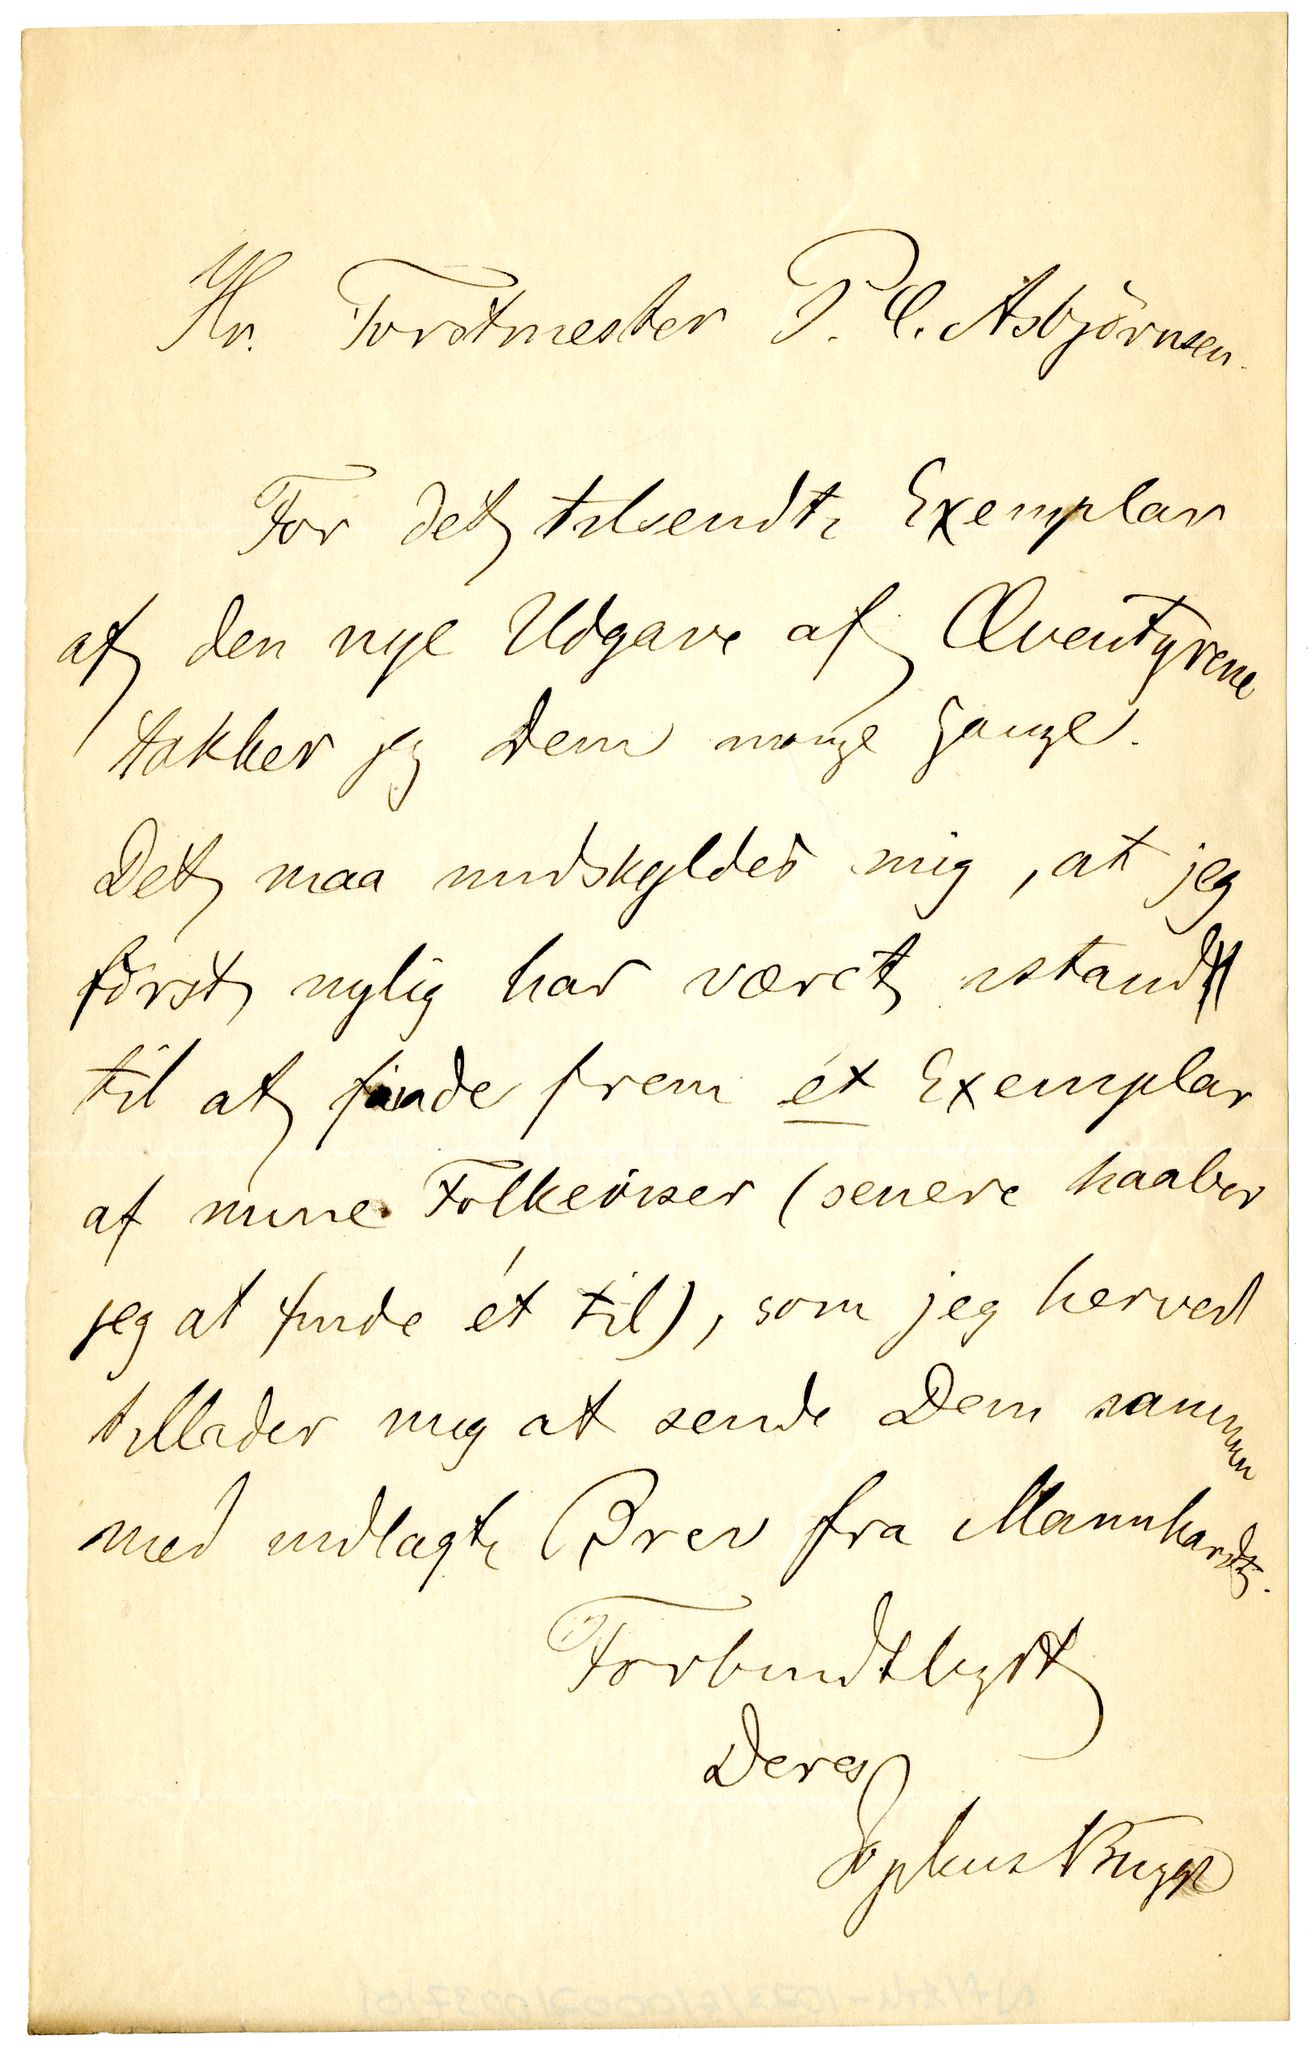 Hr. Forstmester P. C. Asbjörnsen.
For det tilsendte Exemplar
af den nye Udgave af Æventyrene
takker jeg Dem mange Gange.
Det maa undskyldes mig, at jeg
först nylig har været istand
til at finde frem ét Exemplar
af mine Folkeviser (senere haaber
jeg at finde ét til), som jeg herved
tillader mig at sende Dem sammen
med indlagte Brev fra Mannhardt.
Forbindtligst
Deres
Sophus Bugge